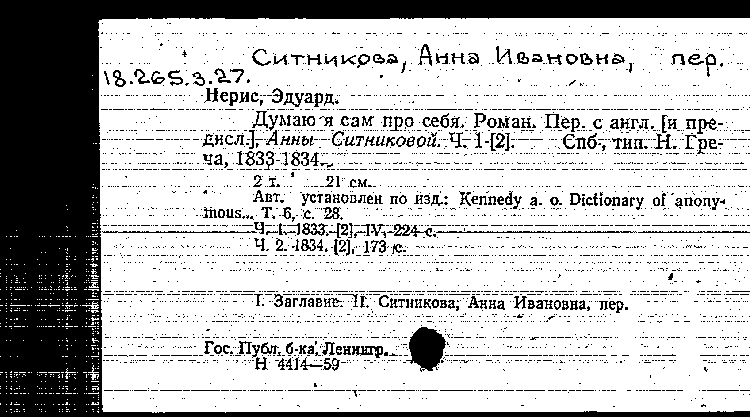 Ситникова, Анна Ивановна, пер.
18.265.3.27.
Нерис, Эдуард.
Думаю я сам про себя. Роман. Пер. с англ. [и пре-
дисл.], Анны Ситниковой. Ч. 1-[2]. Спб, тип. Н. Гре-
ча, 1833-1834.
2 т. 21 см.
Авт. установлен по изд.: Kennedy a. o. Dictionary of anony-
mous... T. 6, с. 28.
Ч. 1. 1833. [2], IV, 224 с.
Ч. 2. 1834. [2], 173 с.
I. Заглавие. II. Ситникова, Анна Ивановна, пер.
Гос. Публ. б-ка, Ленингр.
Н 4414—59